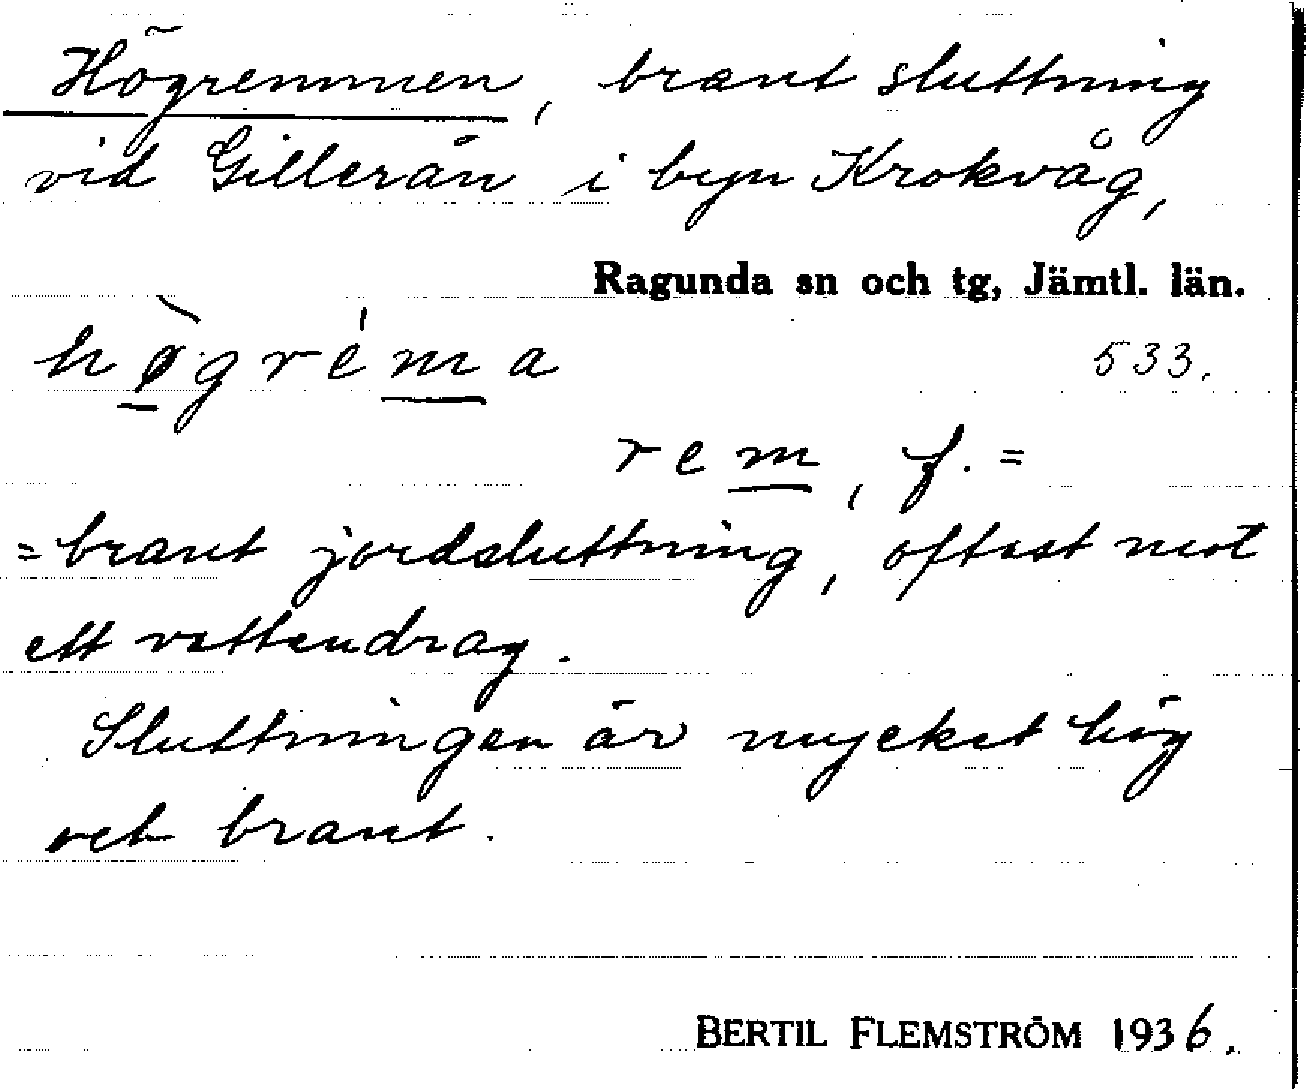 Högremmen, brant sluttning
vid Gillerån i byn Krokvåg,
Ragunda sn och tg, Jämtl. län.
hø̀gréma 533.
rem, f. =
= brant jordsluttning, oftast mot
ett vattendrag.
Sluttningen är mycket hög
och brant.
BERTIL FLEMSTRÖM 1936.